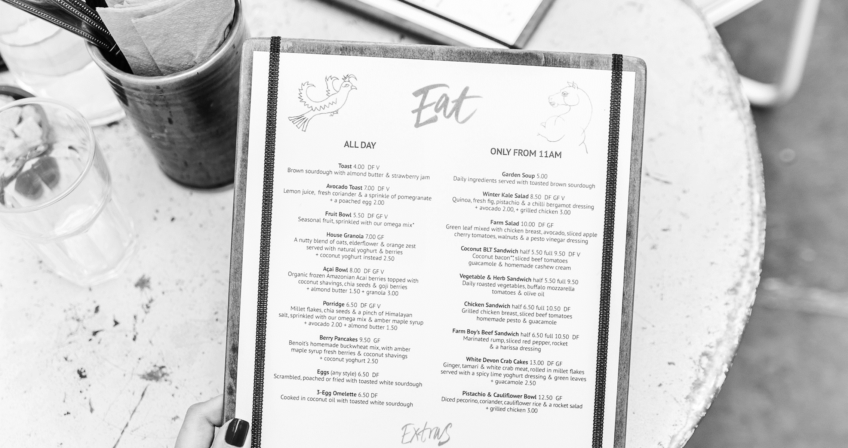 Eat
ALL DAY
Toast 4.00 DF V
Brown sourdough with almond butter & strawberry jam
Avocado Toast 7.00 DF V
Lemon juice, fresh coriander & a sprinkle of pomegranate
+ a poached egg 2.00
Fruit Bowl 5.50 DF GF V
Seasonal fruit, sprinkled with our omega mix*
House Granola 7.00 GF
A nutty blend of oats, elderflower & orange zest
served with natural yoghurt & berries
+ coconut yoghurt instead 2.50
Açai Bowl 8.00 DF GF V
Organic frozen Amazonian Acai berries topped with
coconut shavings, chia seeds & goji berries
+ almond butter 1.50 + granola 3.00
Porridge 6.50 DF GF V
Millet flakes, chia seeds & a pinch of Himalayan
salt, sprinkled with our omega mix & amber maple syrup
+ avocado 2.00 + almond butter 1.50
Berry Pancakes 9.50 GF
Benoit's homemade buckwheat mix, with amber
maple syrup fresh berries & coconut shavings
+ coconut yoghurt 2.50
Eggs (any style) 6.50 DF
Scrambled, poached or fried with toasted white sourdough
3-Egg Omelette 6.50 DF
Cooked in coconut oil with toasted white sourdough
ONLY FROM 11AM
Garden Soup 5.00
Daily ingredients served with toasted brown sourdough
Winter Kale Salad 8.50 DF GF V
Quinoa, fresh fig, pistachio & a chilli bergamot dressing
+ avocado 2.00, + grilled chicken 3.00
Farm Salad 10.00 DF GF
Green leaf mixed with chicken breast, avocado, sliced apple
cherry tomatoes, walnuts & a pesto vinegar dressing
Coconut BLT Sandwich half 5.50 full 9.50 DF V
Coconut bacon**, sliced beef tomatoes
guacamole & homemade cashew cream
Vegetable & Herb Sandwich half 5.50 full 9.50
Daily roasted vegetables, buffalo mozzarella
tomatoes & olive oil
Chicken Sandwich half 6.50 full 10.50 DF
Grilled chicken breast, sliced beef tomatoes
homemade pesto & guacamole
Farm Boy's Beef Sandwich half 6.50 full 10.50 DF
Marinated rump, sliced red pepper, rocket
& a harissa dressing
White Devon Crab Cakes 13.00 DF GF
Ginger, tamari & white crab meat, rolled in millet flakes
served with a spicy lime yoghurt dressing & green leaves
+ guacamole 2.50
Pistachio & Cauliflower Bowl 12.50 GF
Diced pecorino, coriander, cauliflower rice & a rocket salad
+ grilled chicken 3.00
Extras